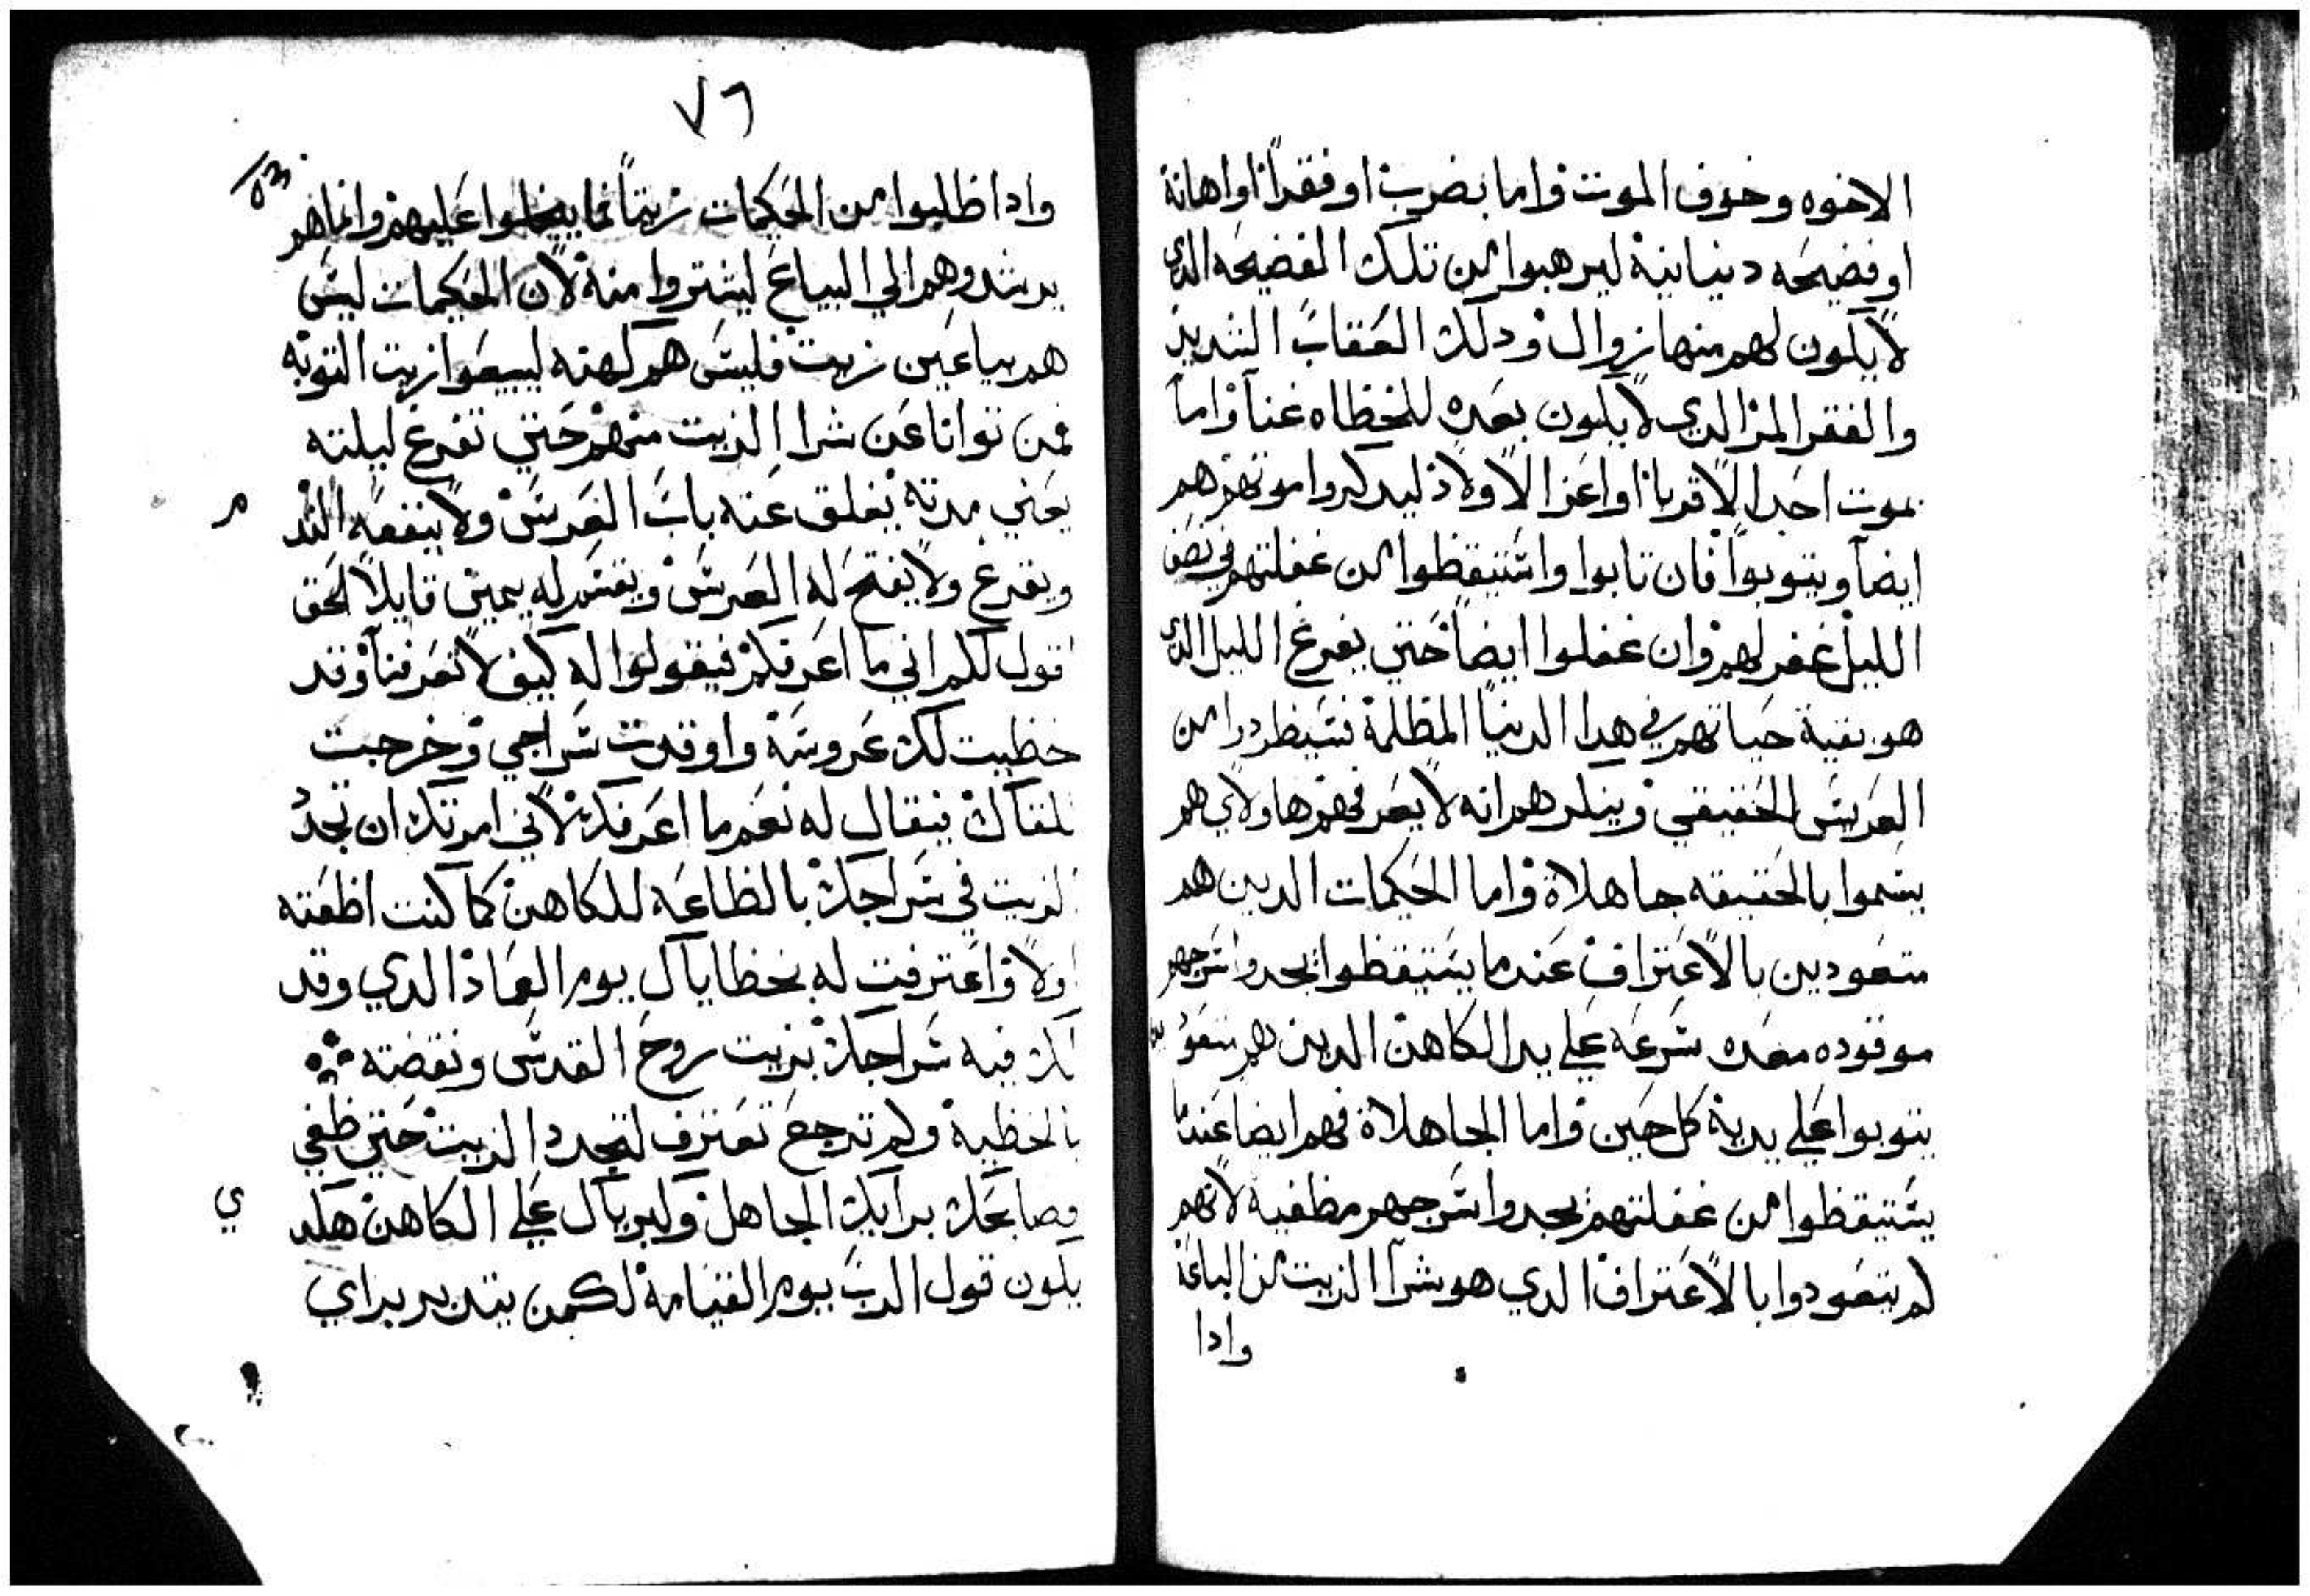 الاخوه وخوف الموت واما بضرب او فقرا او اهانة
او فضيحه دينانية ليرهبوا من تلك الفضيحه الذي
لا يكون لهم منها زوال ودلك العقاب الشديد
والفقر المر الدي لا يكون بعده للخظاه غنا واما
بموت احد الاقربا او اعز الاولاد ليدكروا موتهم هم
ايضا ويتوبوا فان تابوا واستيقظوا من غفلتهم في نصف
الليل غفر لهم وان غفلوا ايضا حتي يفرغ الليل الذي
هو بقية حياتهم في هدا الدنيا المظلمة فسيظردوا من
العريس الحقيقي وينكرهم انه لا يعرفهم هاولاي هم
يسموا بالحقيقه جاهلاة واما الحكيمات الدين هم
متعودين بالاعتراف عندما يستيقظوا يجدوا سرجهم
موقوده معده سرعه علي يد الكاهن الدين هم متعو
يتوبوا علي يدية كل حين واما الجاهلاة فهم ايضا عندما
يستيقظوا من غفلتهم يجدوا سرجهم مظفية لانهم
لم يتعودوا بالاعتراف الدي هو شرا الزيت من الباعة
وادا
٧٦
وادا ظلبوا من الحكيمات زيتا فما يبخلوا عليهم وانما هم
يرشدوهم الي البياع ليشتروا منة لان الحكيمات ليس
هم بياعين زيت فليس هم كهنه ليبيعوا زيت التوبه
فمن توانا عن شرا الزيت منهم حتي تفرغ ليلته
يعني مدتة يغلق عنه باب العرس ولا ينفعه الند
م
ويقرع ولا يفتح له العرس ويقسم له يمين قايلا الحق
اقول لكم اني ما اعرفكم فيقولوا له كيف لا تعرفنا وقد
خظبت لك عروسة واوقدت سراجي وخرجت
للقاك فيقال له نعم ما اعرفك لاني امرتك ان تجدد
الزيت في سراجك بالظاعه للكاهن كما كنت اظعته
اولا واعترفت له بخظاياك يوم العماد الدي وقد
لك فيه سراجك بزيت روح القدس ونقضته
بالخظية ولم ترجع تعترف لتجدد الزيت حتي ظفي
مصابحك برايك الجاهل وكبرياك علي الكاهن هكد
ي
يكون قول الرب يوم القيامة لكمن يتدبر براي